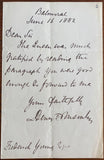 Balmoral
June 16 1882
Dear Sir
The Queen was much
gratified by reading the
paragraph you were good
enough to forward to me
Yours faithfully
Henry F Ponsonby
Frederick Young Esq